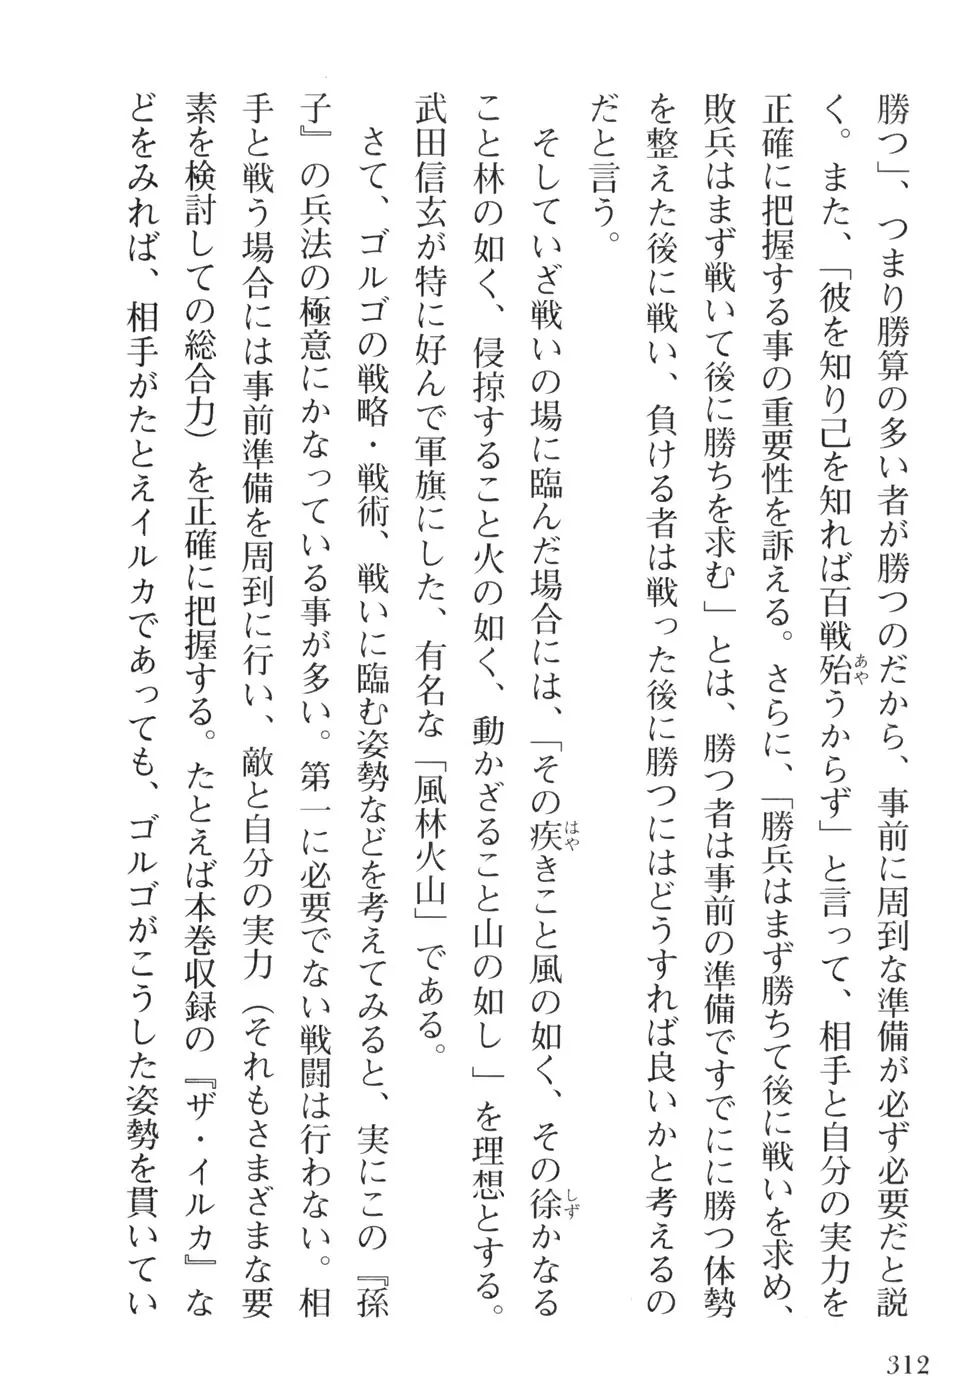 勝つ」、つまり勝算の多い者が勝つのだから、事前に周到な準備が必ず必要だと説
く。また、「彼を知り己を知れば百戦殆うからず」と言って、相手と自分の実力を
正確に把握する事の重要性を訴える。さらに、「勝兵はまず勝ちて後に戦いを求め、
敗兵はまず戦いて後に勝ちを求む」とは、勝つ者は事前の準備ですでにに勝つ体勢
を整えた後に戦い、負ける者は戦った後に勝つにはどうすれば良いかと考えるの
だと言う。
そしていざ戦いの場に臨んだ場合には、「その疾きこと風の如く、その徐かなる
こと林の如く、侵掠すること火の如く、動かざること山の如し」を理想とする。
武田信玄が特に好んで軍旗にした、有名な「風林火山」である。
さて、ゴルゴの戦略・戦術、戦いに臨む姿勢などを考えてみると、実にこの『孫
子』の兵法の極意にかなっている事が多い。第一に必要でない戦闘は行わない。相
手と戦う場合には事前準備を周到に行い、敵と自分の実力（それもさまざまな要
素を検討しての総合力）を正確に把握する。たとえば本巻収録の『ザ・イルカ』な
どをみれば、相手がたとえイルカであっても、ゴルゴがこうした姿勢を貫いてい
312